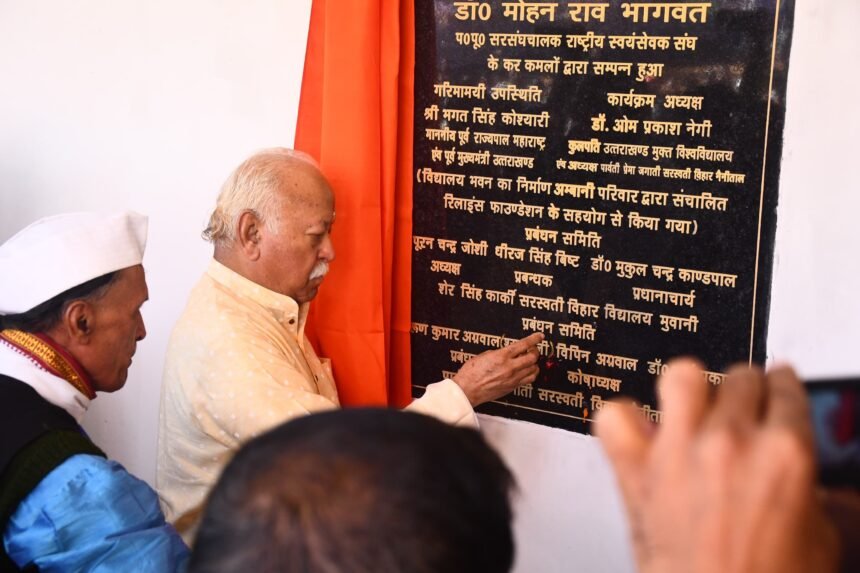 डॉ0 मोहन राव भागवत
प0पू0 सरसंघचालक राष्ट्रीय स्वयंसेवक संघ
के कर कमलों द्वारा सम्पन्न हुआ
गरिमामयी उपस्थिति कार्यक्रम अध्यक्ष
श्री भगत सिंह कोश्यारी डॉ. ओम प्रकाश नेगी
माननीय पूर्व राज्यपाल महाराष्ट्र कुलपति उत्तराखण्ड मुक्त विश्वविद्यालय
एंव पूर्व मुख्यमंत्री उत्तराखण्ड एंव अध्यक्ष पार्वती प्रेमा जगाती सरस्वती विहार नैनीताल
(विद्यालय भवन का निर्माण अम्बानी परिवार द्वारा संचालित
रिलाइंस फाउण्डेशन के सहयोग से किया गया)
प्रबंधन समिति
पूरन चन्द्र जोशी धीरज सिंह बिष्ट डॉ0 मुकुल चन्द्र काण्डपाल
अध्यक्ष प्रबन्धक प्रधानाचार्य
शेर सिंह कार्की सरस्वती विहार विद्यालय मुवानी
प्रबंधन समिति
कुमार अग्रवाल विपिन अग्रवाल डॉ0
कोषाध्यक्ष
सरस्वती